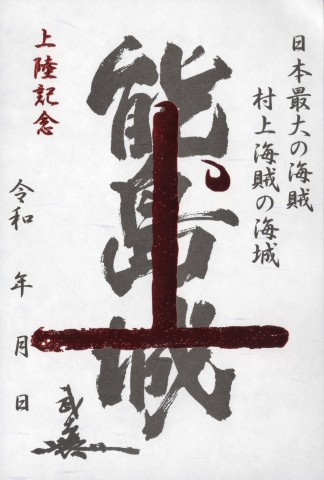 日本最大の海賊
村上海賊の海城
能島城
上
上陸記念
令和 年 月 日
武慶